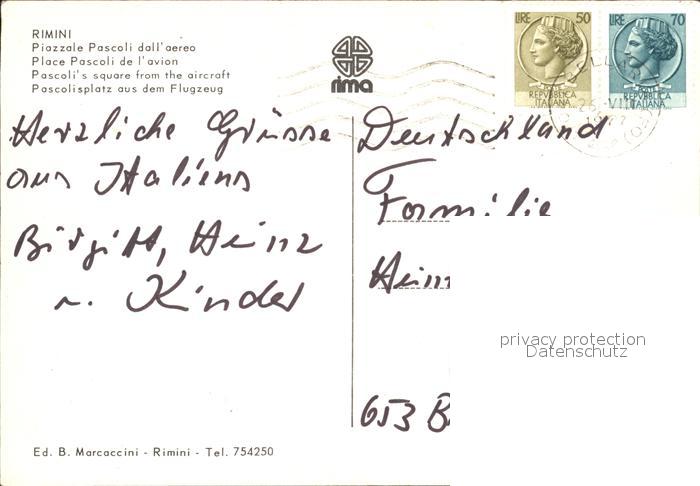 RIMINI
Piazzale Pascoli dall'aereo
Place Pascoli de l'avion
Pascoli's square from the aircraft
Pascolisplatz aus dem Flugzeug
rima
LIRE 50
REPVBBLICA
ITALIANA
LIRE 70
POSTE
REPVBBLICA
ITALIANA
Herzliche Grüsse
aus Italiens
Birgitt, Heinz
u. Kinder
Deutschland
Familie
Hein
653 B
privacy protection
Datenschutz
Ed. B. Marcaccini - Rimini - Tel. 754250